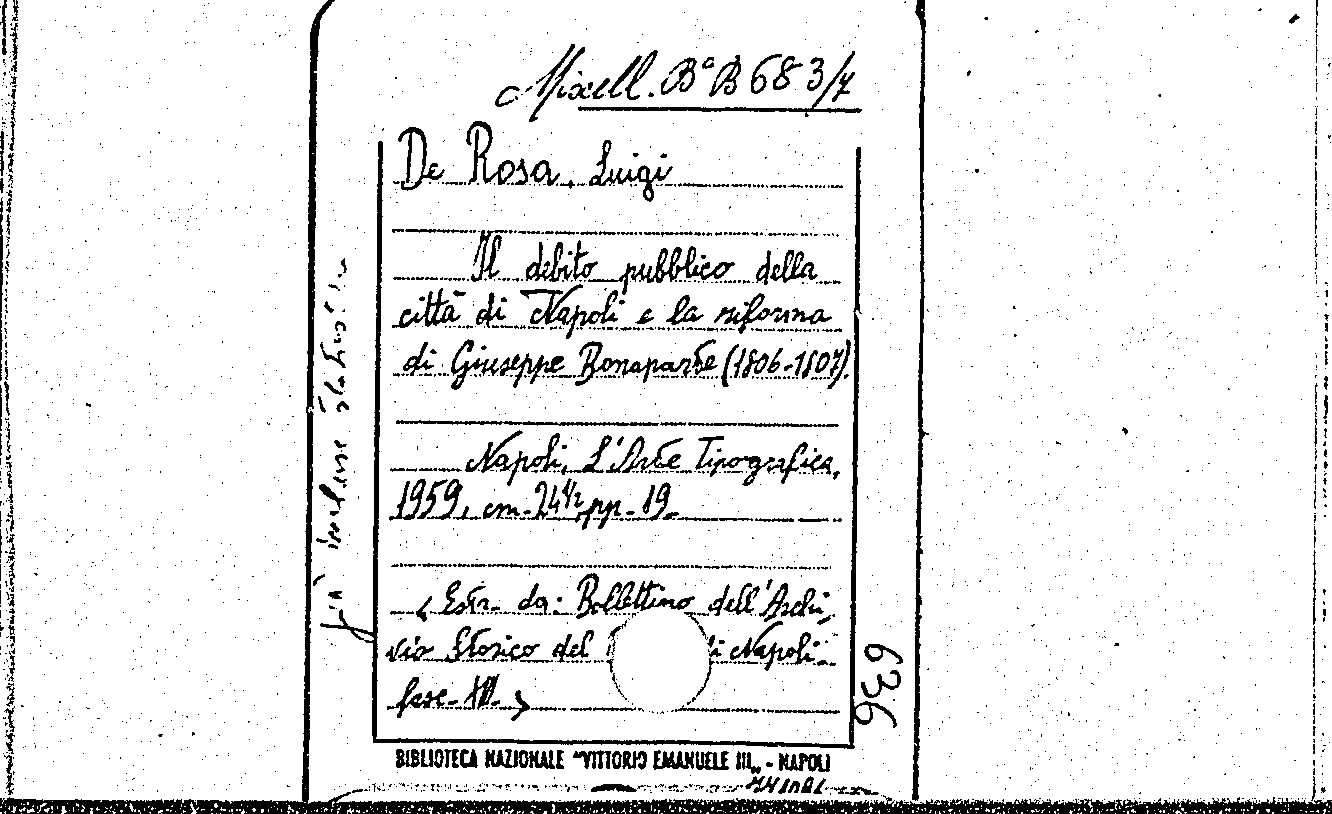 Miscell. B° B 683/7
De Rosa, Luigi
Il debito pubblico della
città di Napoli e la riforma
di Giuseppe Bonaparte (1806-1807).
Napoli, L'Arte Tipografica,
1959, cm. 24½, pp. 19.
< Estr. da: Bollettino dell'Archi,
vio Storico del di Napoli.
fasc. >
BIBLIOTECA NAZIONALE "VITTORIO EMANUELE III„ - NAPOLI
636